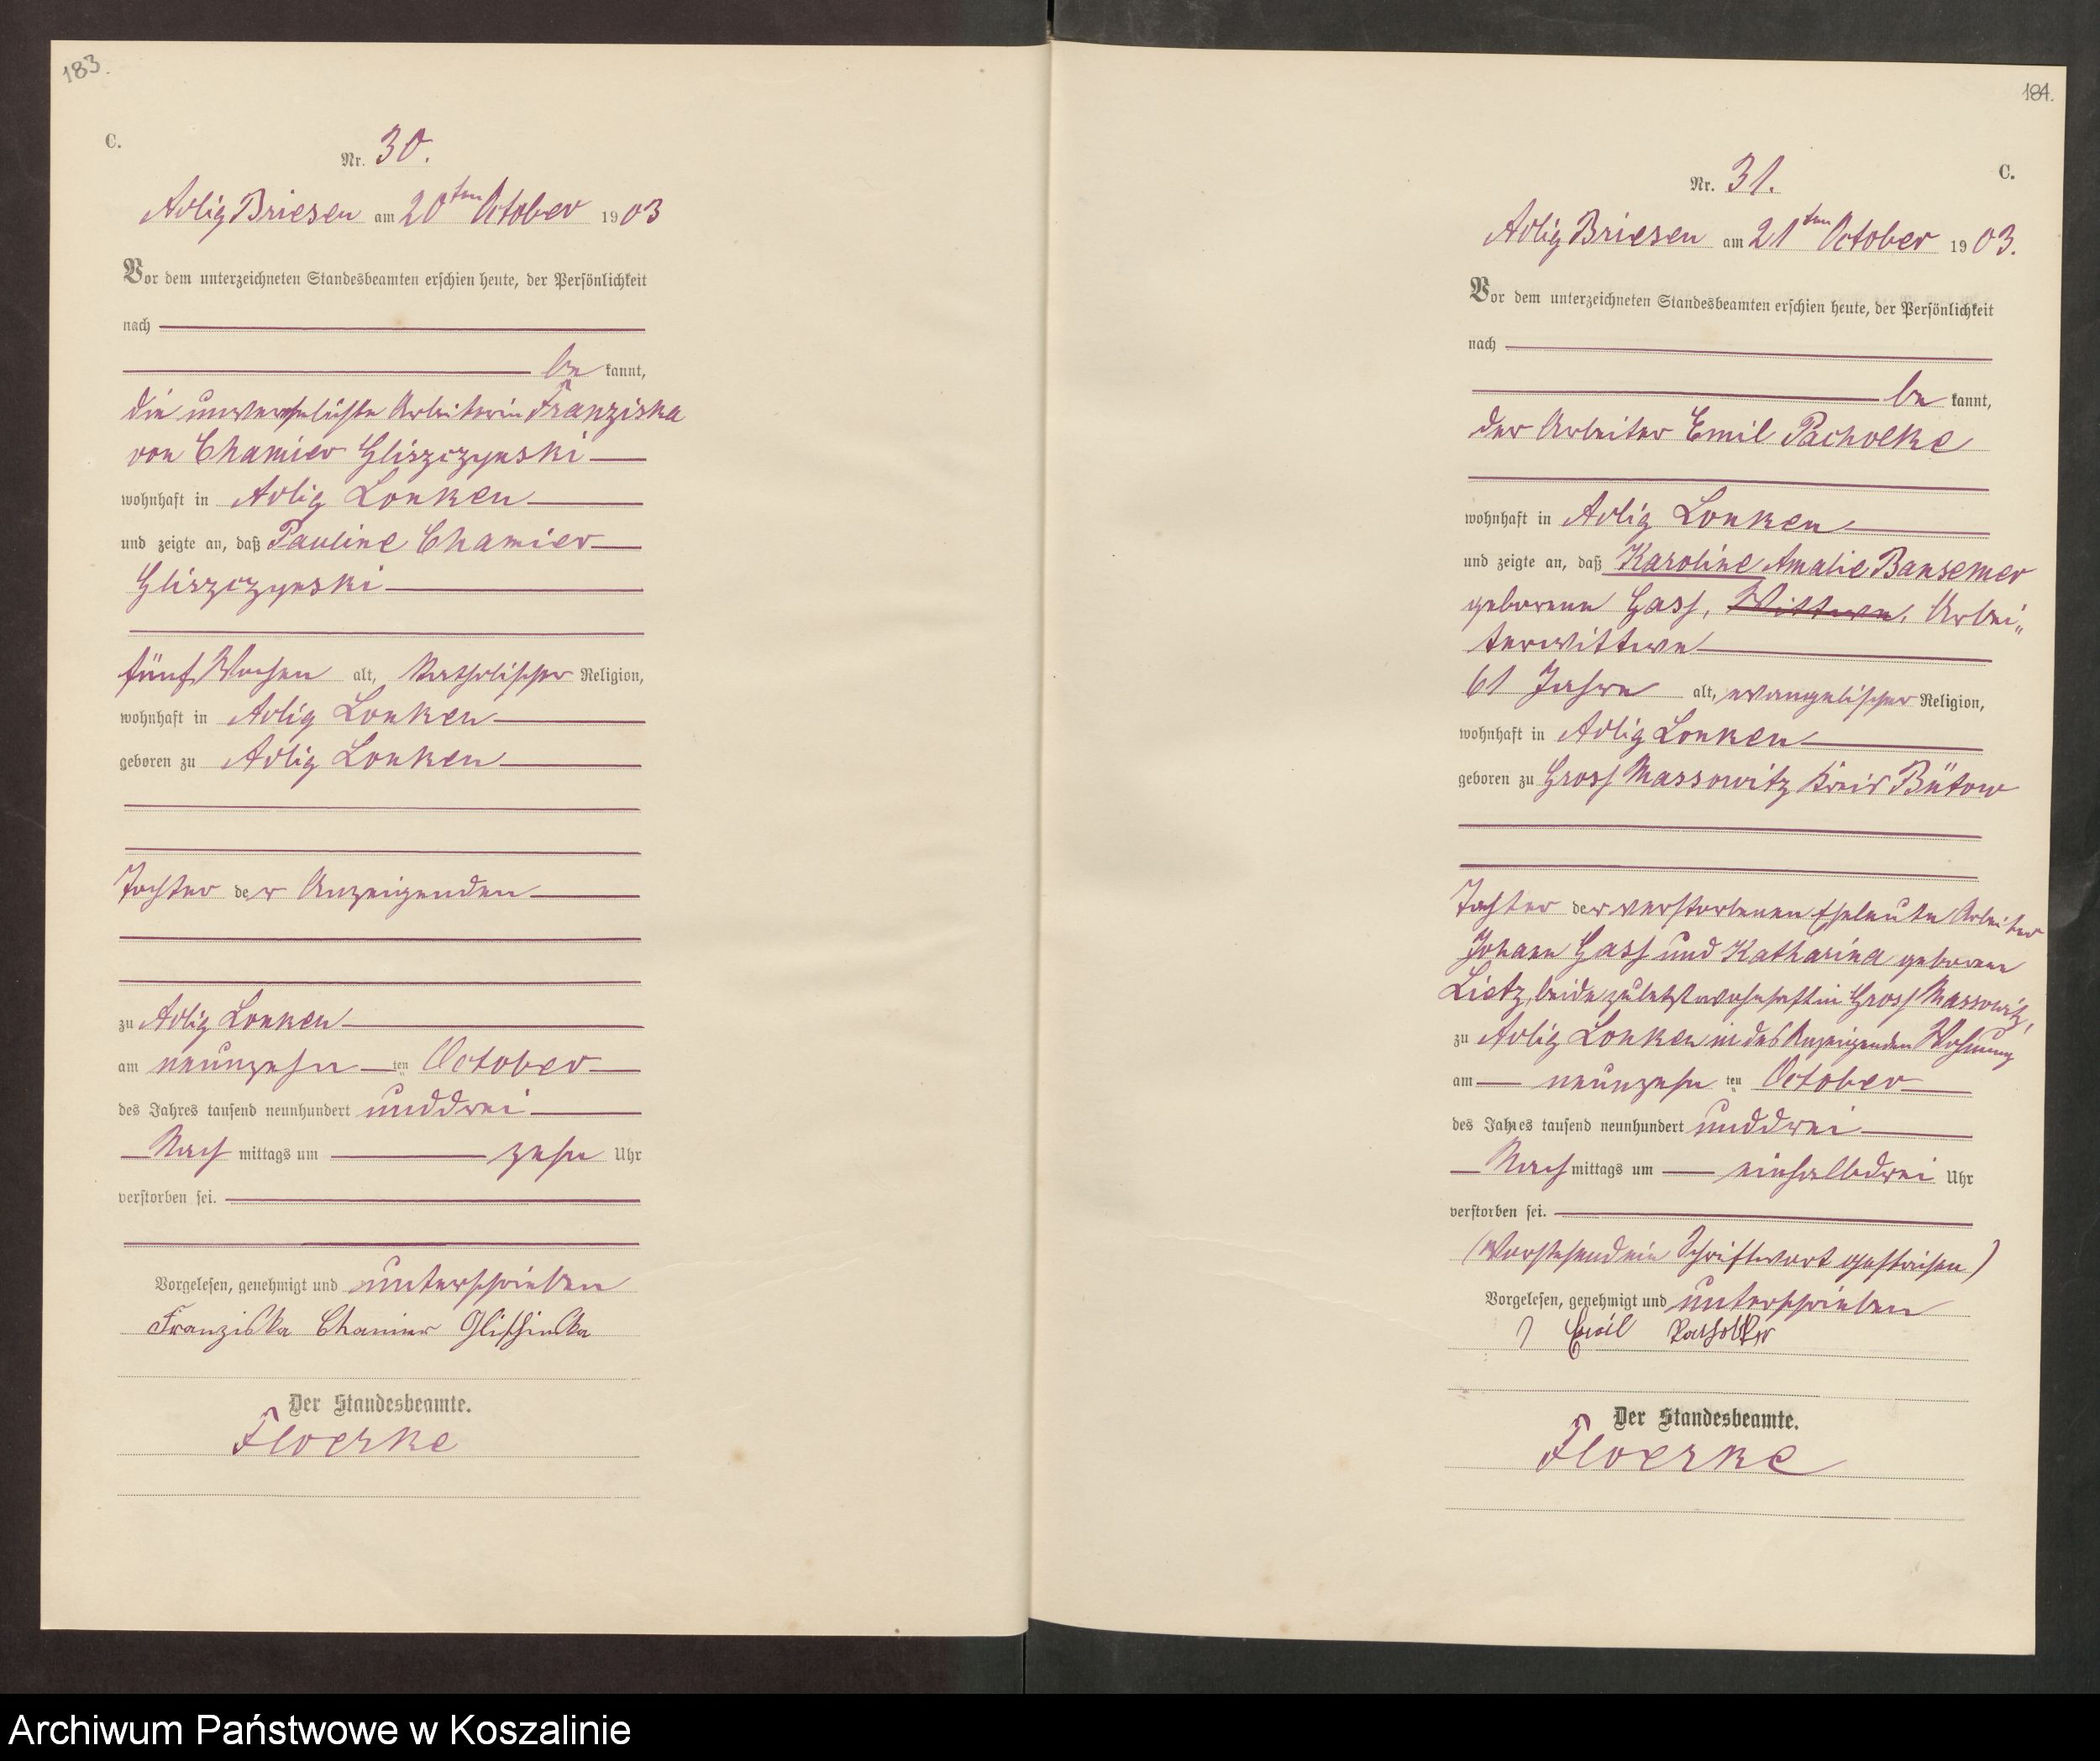 183.
C.
Nr. 30.
Adlig Briesen am 20ten October 1903
Vor dem unterzeichneten Standesbeamten erschien heute, der Persönlichkeit
nach
be kannt,
die unverehelichte Arbeiterin Franziska
von Chamier Gliszczynski
wohnhaft in Adlig Lonken
und zeigte an, daß Pauline Chamier
Gliszczynski
fünf Wochen alt, katholischer Religion,
wohnhaft in Adlig Lonken
geboren zu Adlig Lonken
Tochter der Anzeigenden
zu Adlig Lonken
am neunzehn ten October
des Jahres tausend neunhundert unddrei
Nach mittags um zehn Uhr
verstorben sei.
Vorgelesen, genehmigt und unterschrieben
Franziska Chamier
Der Standesbeamte.
Floerke
184.
C.
Nr. 31.
Adlig Briesen am 21ten October 1903.
Vor dem unterzeichneten Standesbeamten erschien heute, der Persönlichkeit
nach
be kannt,
der Arbeiter Emil Pacholke
wohnhaft in Adlig Lonken
und zeigte an, daß Karoline Amalie Bansemer
geborene Gass, Wittwe, Arbei„
terwittwe
61 Jahre alt, evangelischer Religion,
wohnhaft in Adlig Lonken
geboren zu Gross Massowitz Kreis Bütow
Tochter der verstorbenen Eheleute Arbeiter
Johann Gass und Katharina geborene
Lietz, beide zuletzt wohnhaft in Gross Massowitz,
zu Adlig Lonken in des Anzeigenden Wohnung
am neunzehn ten October
des Jahres tausend neunhundert unddrei
Nach mittags um einhalbdrei Uhr
verstorben sei.
(Vorstehend ein Schriftwort gestrichen)
Vorgelesen, genehmigt und unterschrieben
Emil Pacholke
Der Standesbeamte.
Floerke
Archiwum Państwowe w Koszalinie